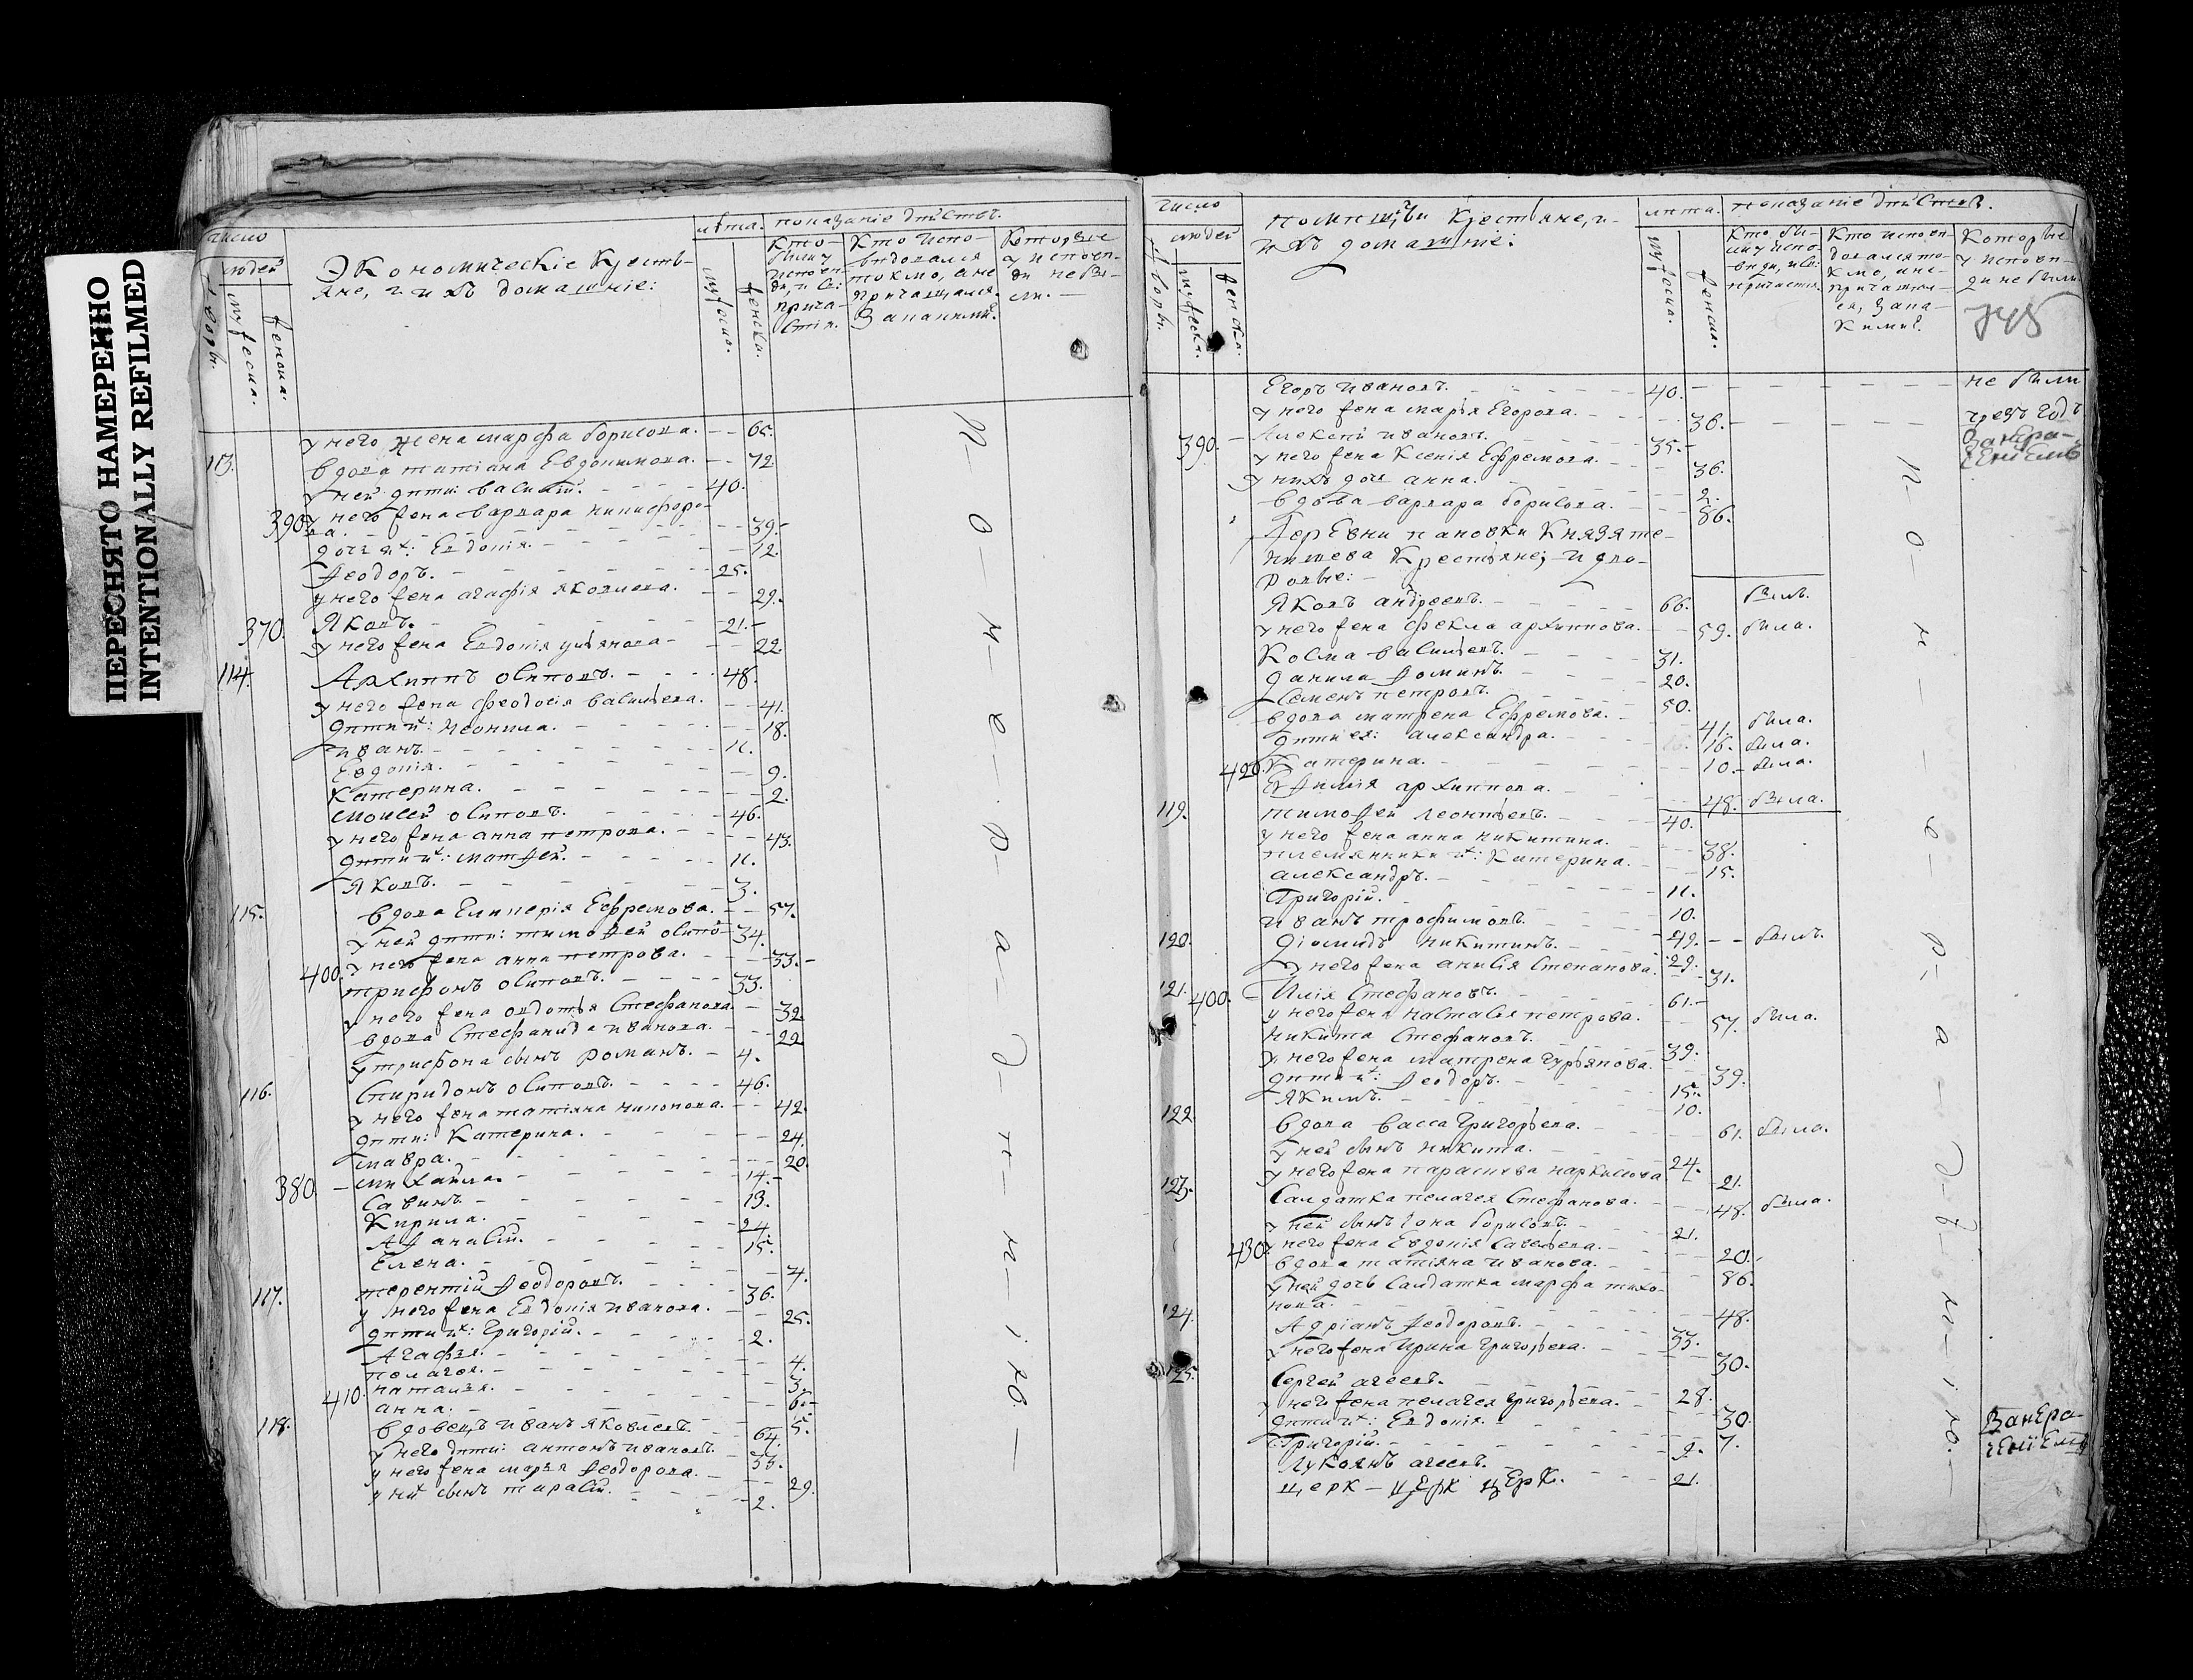 ПЕРЕСНЯТО НАМЕРЕННО
INTENTIONALLY REFILMED
число
людей
дворы.
мужеска.
женска.
Экономическіе Кресть-
яне, и ихъ домашніе:
лѣта.
мужеска.
женска.
показаніе дѣйствъ.
Кто
были у
исповѣ-
ди, и св:
прича-
стія.
Кто испо-
вѣдовался
токмо, а не
причащался.
За какимъ.
Которые
у исповѣ-
ди не бы-
ли. —
у него жена марфа борисова. 65.
113. вдова татіана Евдокимова. 72
у ней дѣти: василій. 40.
390. у него жена варвара никифоро-
ва. 39.
дочь ихъ: Евдокія. 12.
Ѳеодоръ. 25.
у него жена агафія яковлева. 29.
370. Яковъ. 21.
у него жена Евдокія ульянова 22.
114. Архиппъ осиповъ. 48.
у него жена феодосія васильева. 41.
дѣти ихъ: неонила. 18.
иванъ. 11.
Евдокія. 9.
Катерина. 2.
Моисей осиповъ. 46.
у него жена анна петрова. 43.
дѣти ихъ: матѳей. 11.
Яковъ. 3.
115. вдова Гликерія Ефремова. 57.
у ней дѣти: тимоѳей осипо- 34.
400. у него жена анна петрова. 33.
трифонъ осиповъ. 33.
у него жена авдотья Стефанова 32.
вдова Стефанида иванова. 22
у трифона сынъ романъ. 4.
116. Спиридонъ осиповъ. 46.
у него жена татіана никонова. 42.
дѣти: Катерина. 24.
мавра. 20.
380 михайла. 14.
Савинъ. 13.
Кирила. 24.
Аѳанасій. 15.
Елена. 7.
117. терентій Ѳеодоровъ. 36.
у него жена Евдокія иванова. 25.
дѣти ихъ: Григорій. 2.
Агафья. 4.
пелагея. 3.
410. наталья. 6.
анна. 5.
118. вдовецъ иванъ яковлевъ. 64.
у него дѣти: антонъ ивановъ. 33.
у него жена марья Ѳеодорова. 29.
у нихъ сынъ тарасій. 2.
п—о—н—е—р—а—д—ѣ—н—і—ю—
число
людей
дворы.
мужеска.
женска.
помѣщичьи Крестьяне, и
ихъ домашніе:
лѣта.
мужеска.
женска.
показаніе дѣйствъ.
Кто бы-
ли у испо-
вѣди, и св:
причастія.
Кто исповѣ-
довался то-
кмо, а не
причащал-
ся, за ка-
кимъ.
Которые
у исповѣ-
ди не были.
Егоръ ивановъ. 40. не были
у него жена марья Егорова. 36. чрезъ годъ
390. Алексѣй ивановъ. 35.
у него жена Ксенія Ефремова. 36.
у нихъ дочь анна. 2.
вдова варвара борисова. 86.
Деревни пановки Князя те-
нишева Крестьяне, и дво-
ровые:
Яковъ андреевъ. 66. былъ.
у него жена фекла архиппова. 59. была.
Косма васильевъ. 31.
данила Ѳоминъ. 20.
Семенъ петровъ. 50.
вдова матрена Ефремова. 41. была.
дѣти ея: александра. 16. была.
420. Катерина. 10. была.
Евфимія архиппова. 48. была.
119. тимоѳей леонтьевъ. 40.
у него жена анна никитина. 38.
племянники ихъ: Катерина. 15.
александръ. 11.
Григорій. 10.
иванъ трофимовъ. 49. былъ.
120. діомидъ никитинъ. 29.
у него жена анисія Степанова. 31.
121. 400. Илія Стефановъ. 61.
у него жена настасія петрова. 57. была.
никита Стефановъ. 39.
у него жена матрена гурьянова. 39.
дѣти ихъ: Ѳеодоръ. 15.
Якимъ. 10.
122. вдова васса Григорьева. 61. была.
у ней сынъ никита. 24.
у него жена парасковья наркисова 21.
123. Салдатка пелагея Стефанова. 48. была.
у ней сынъ іона борисовъ. 21.
430. у него жена Евдокія Савельева. 20.
вдова татіяна иванова. 86.
у ней дочь Салдатка марфа тихо-
нова. 48.
124. Адріанъ Ѳеодоровъ. 33.
у него жена Ирина Григорьева. 30.
125. Сергей агеевъ. 28.
у него жена пелагея григорьева. 30.
дѣти ихъ: Евдокія. 7.
Григорій. 2.
Лукоянъ агеевъ. 21.
церк — церк церк.
п—о—н—е—р—а—д—ѣ—н—і—ю.—